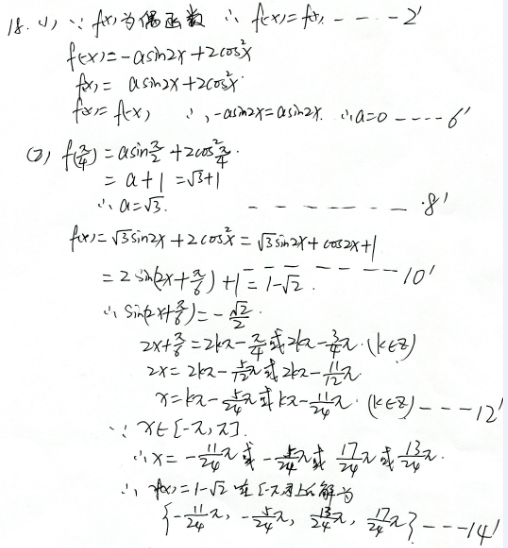 18. (1) ∵ f(x)为偶函数 ∴ f(-x)=f(x) - - - - 2'
f(-x)=-asin2x+2cos²x
f(x)= asin2x+2cos²x
f(x)=f(-x), ∴ -asin2x=asin2x. ∴a=0 - - - - 6'
(2) f(π/4)=asinπ/2+2cos²π/4.
= a+1 =√3+1
∴ a=√3. - - - - - - - 8'
f(x)=√3sin2x+2cos²x=√3sin2x+cos2x+1
=2sin(2x+π/6)+1=1-√2. - - - - - - 10'
∴ sin(2x+π/6)=-√2/2.
2x+π/6=2kπ-π/4或2kπ-3/4π. (k∈Z)
2x=2kπ-5/12π或2kπ-11/12π
x=kπ-5/24π或kπ-11/24π. (k∈Z) - - - 12'
∵ x∈[-π,π].
∴x=-11/24π或-5/24π或 17/24π或13/24π.
∴ f(x)=1-√2在[-π,π]上的解为
{-11/24π, -5/24π, 13/24π, 17/24π} - - - 14'